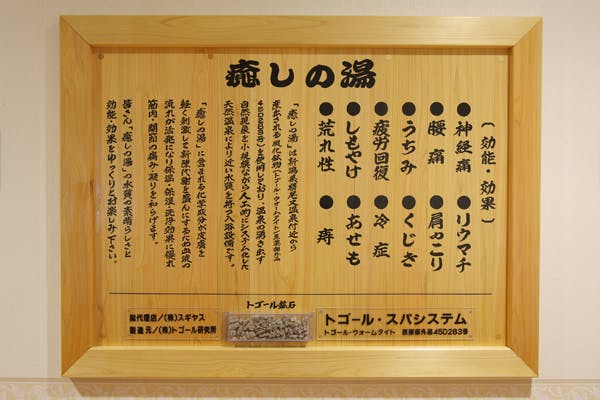 癒しの湯
〔効能・効果〕
●神経痛 ●リウマチ
●腰痛 ●肩こり
●うちみ ●くじき
●疲労回復 ●冷症
●しもやけ ●あせも
●荒れ性 ●痔
「癒しの湯」は新潟県栃尾又温泉付近から
産出される風化鉱物(トゴール・ウォームタイト/医薬部外品
45D283号)を使用しており、温泉の湧き出す
自然現象を小規模ながら人工的にシステム化した
天然温泉により近い水質を持つ入浴設備です。
「癒しの湯」に含まれる化学成分が皮膚を
軽く刺激して新陳代謝を盛んにするため血液の
流れが活発になり保温・保湿・洗浄効果に優れ
筋肉・関節の痛み・凝りを和らげます。
皆さん「癒しの湯」の水質の素晴らしさと
効能・効果をゆっくりとお楽しみ下さい。
トゴール鉱石
総代理店/(株)スギヤス
製造元/(株)トゴール研究所
トゴール・スパシステム
トゴール・ウォームタイト 医薬部外品45D283号